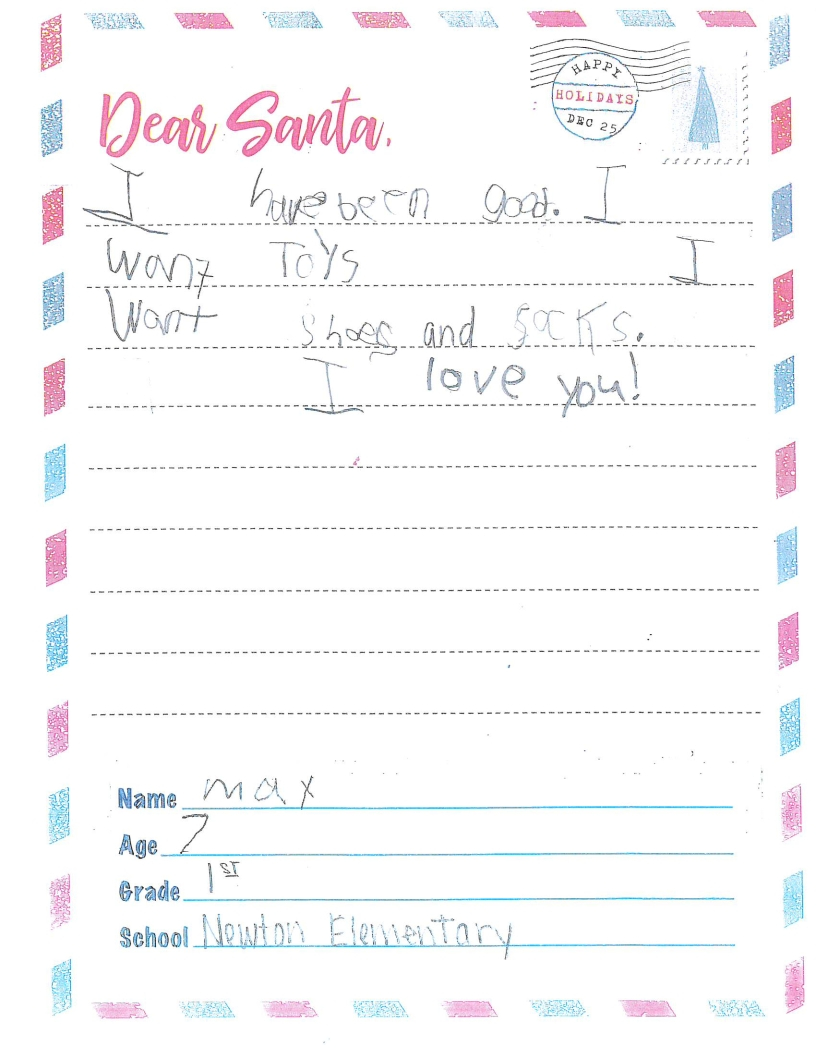 HAPPY
HOLIDAYS
DEC 25
Dear Santa,
I have been good. I
want Toys I
Want shoes and socks.
I love you!
Name max
Age 7
Grade 1ST
School Newton Elementary